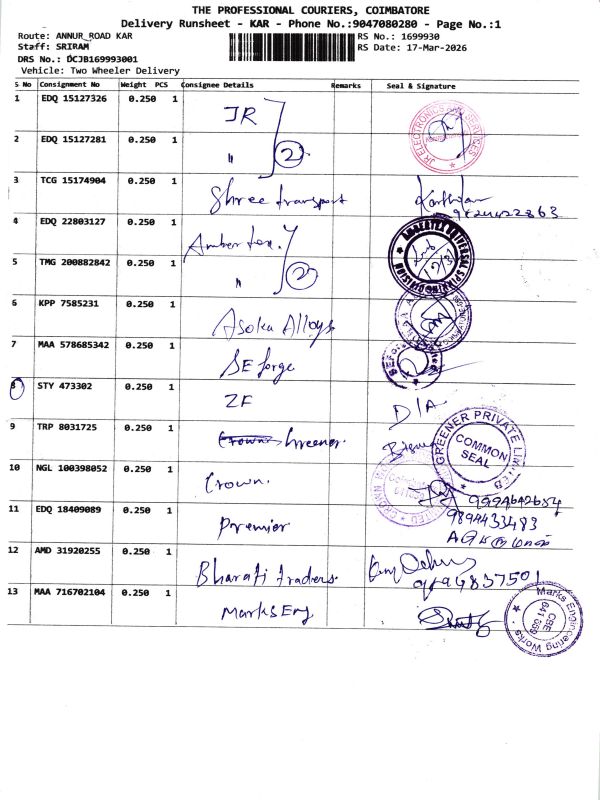 THE PROFESSIONAL COURIERS, COIMBATORE
Delivery Runsheet - KAR - Phone No.:9047080280 - Page No.:1
Route: ANNUR_ROAD KAR
RS No.: 1699930
Staff: SRIRAM
RS Date: 17-Mar-2026
DRS No.: DCJB169993001
Vehicle: Two Wheeler Delivery
S No Consignment No Weight PCS Consignee Details Remarks Seal & Signature
1 EDQ 15127326 0.250 1 JR
2 EDQ 15127281 0.250 1 " 2
JK ELECTRONICS SERVICES
3 TCG 15174904 0.250 1 Shree transport
4 EDQ 22803127 0.250 1 Amber tex.
UNIVERSAL SPINNING DIVISION
5 TMG 200882842 0.250 1 " 2
6 KPP 7585231 0.250 1 Asoka Alloys
7 MAA 578685342 0.250 1 SE forge
8 STY 473302 0.250 1 ZF D/A
9 TRP 8031725 0.250 1 Crown Greener.
GREENER PRIVATE LIMITED
COMMON SEAL
10 NGL 100398052 0.250 1 Crown.
CROWN LIMITED
9994642654
11 EDQ 18409089 0.250 1 Premier
9894433483
12 AMD 31920255 0.250 1 Bharati traders
13 MAA 716702104 0.250 1 Marks Eng
Marks Engineering Works
CBE
641 659